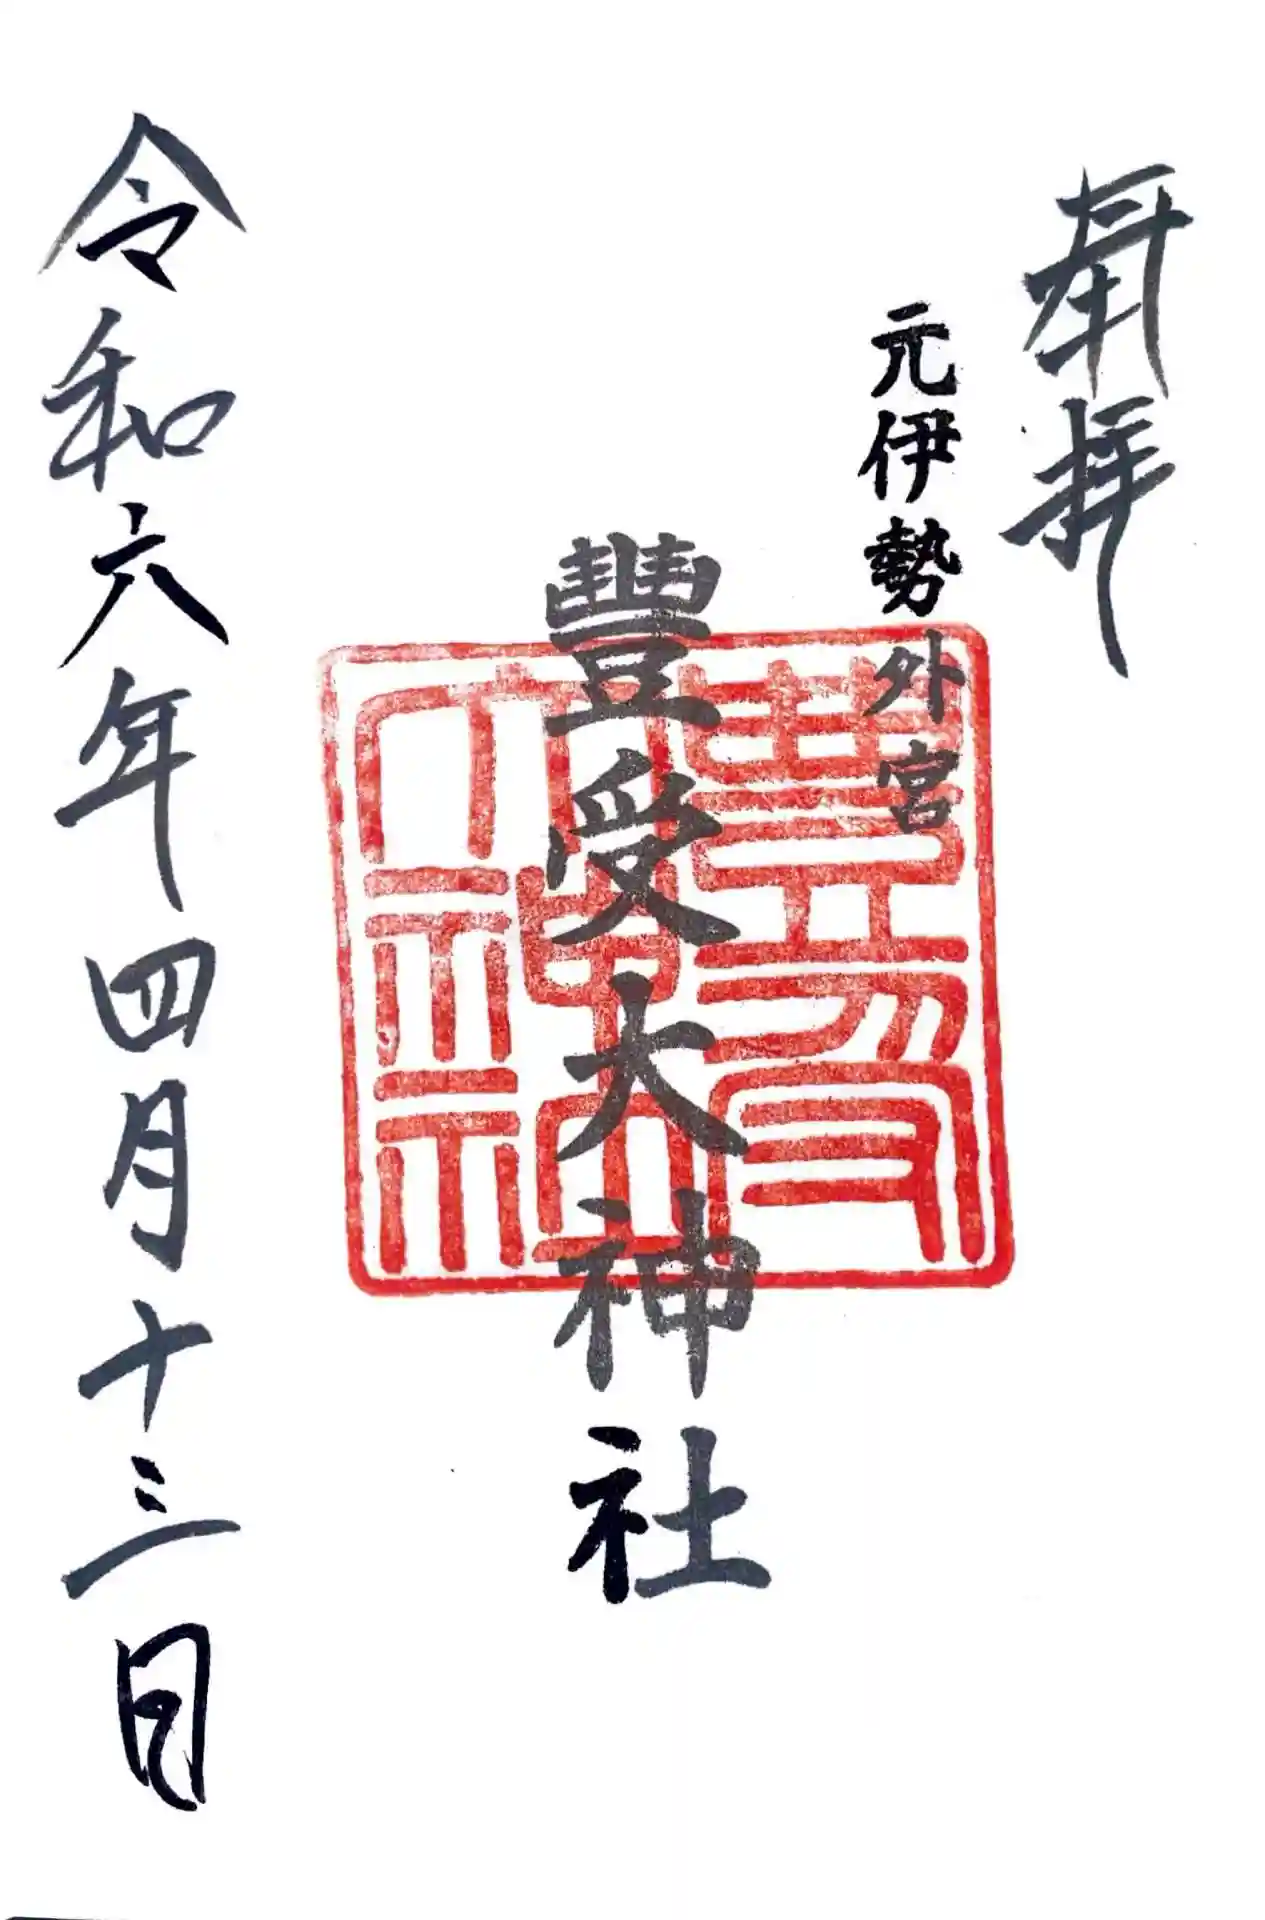 奉拝
元伊勢外宮
豐受大神社
令和六年四月十三日
豊受大神社